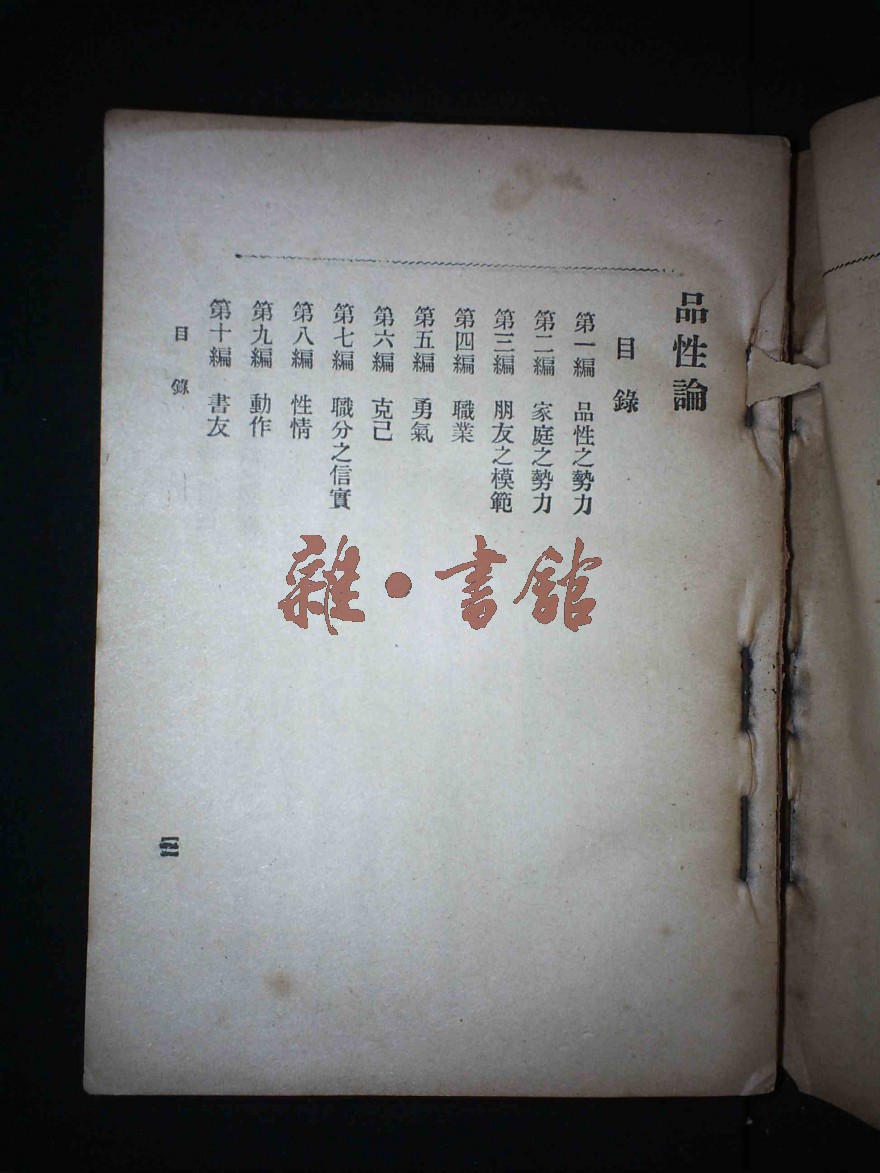 品性論
目錄
第一編 品性之勢力
第二編 家庭之勢力
第三編 朋友之模範
第四編 職業
第五編 勇氣
第六編 克己
第七編 職分之信實
第八編 性情
第九編 動作
第十編 書友
目錄
雜·書館